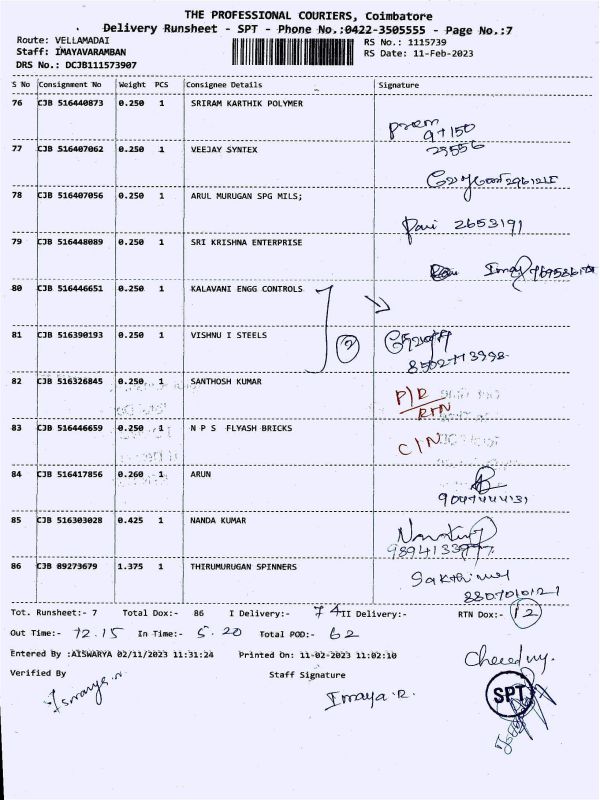 THE PROFESSIONAL COURIERS, Coimbatore
Delivery Runsheet - SPT - Phone No.:0422-3505555 - Page No.:7
Route: VELLAMADAI RS No.: 1115739
Staff: IMAYAVARAMBAN RS Date: 11-Feb-2023
DRS No.: DCJB111573907
S No Consignment No Weight PCS Consignee Details Signature
76 CJB 516440873 0.250 1 SRIRAM KARTHIK POLYMER
77 CJB 516407062 0.250 1 VEEJAY SYNTEX
78 CJB 516407056 0.250 1 ARUL MURUGAN SPG MILS; 2653191
79 CJB 516448089 0.250 1 SRI KRISHNA ENTERPRISE
80 CJB 516446651 0.250 1 KALAVANI ENGG CONTROLS
81 CJB 516390193 0.250 1 VISHNU I STEELS 2
82 CJB 516326845 0.250 1 SANTHOSH KUMAR P/R
RTN
83 CJB 516446659 0.250 1 N P S FLYASH BRICKS C/N
84 CJB 516417856 0.260 1 ARUN
85 CJB 516303028 0.425 1 NANDA KUMAR
86 CJB 89273679 1.375 1 THIRUMURUGAN SPINNERS
8807010121
Tot. Runsheet:- 7 Total Dox:- 86 I Delivery:- 74 II Delivery:- RTN Dox:- 12
Out Time:- 12.15 In Time:- 5.20 Total POD:- 62
Entered By :AISWARYA 02/11/2023 11:31:24 Printed On: 11-02-2023 11:02:10
Verified By Staff Signature
Imaya.R.
SPT